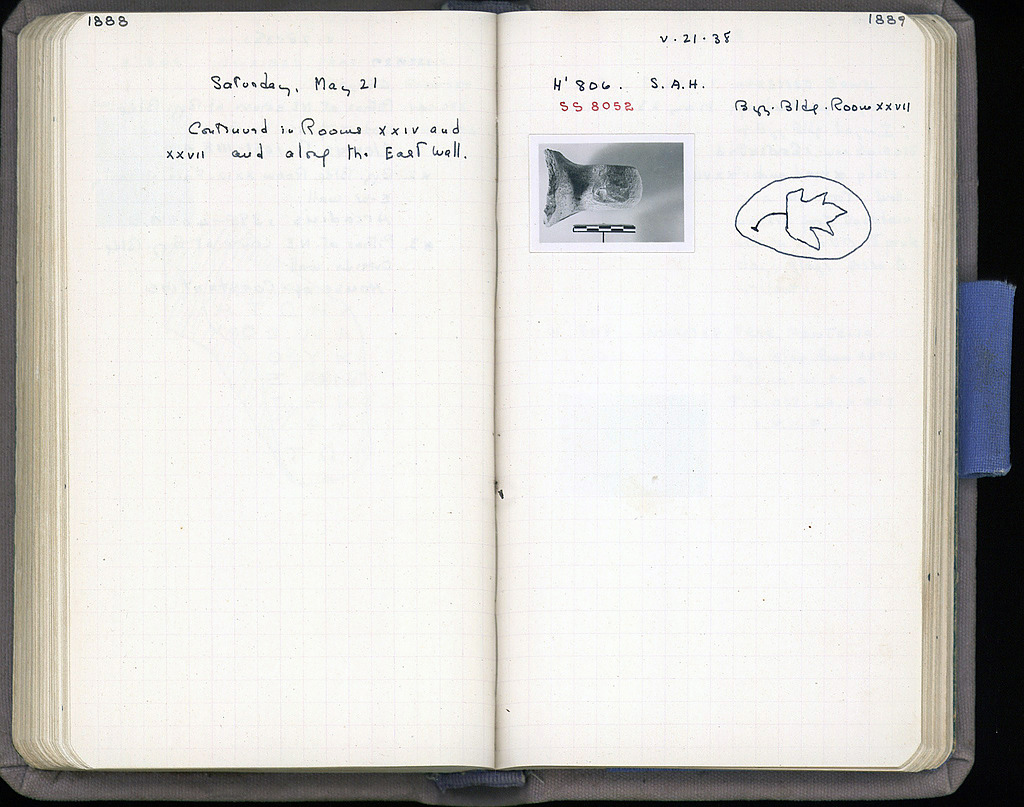 1888
Saturday, May 21
Continued in Rooms XXIV and
XXVII and along the East wall.
1889
V. 21. 38
H' 806. S.A.H.
SS 8052
Byz. Bldg. Room XXVII